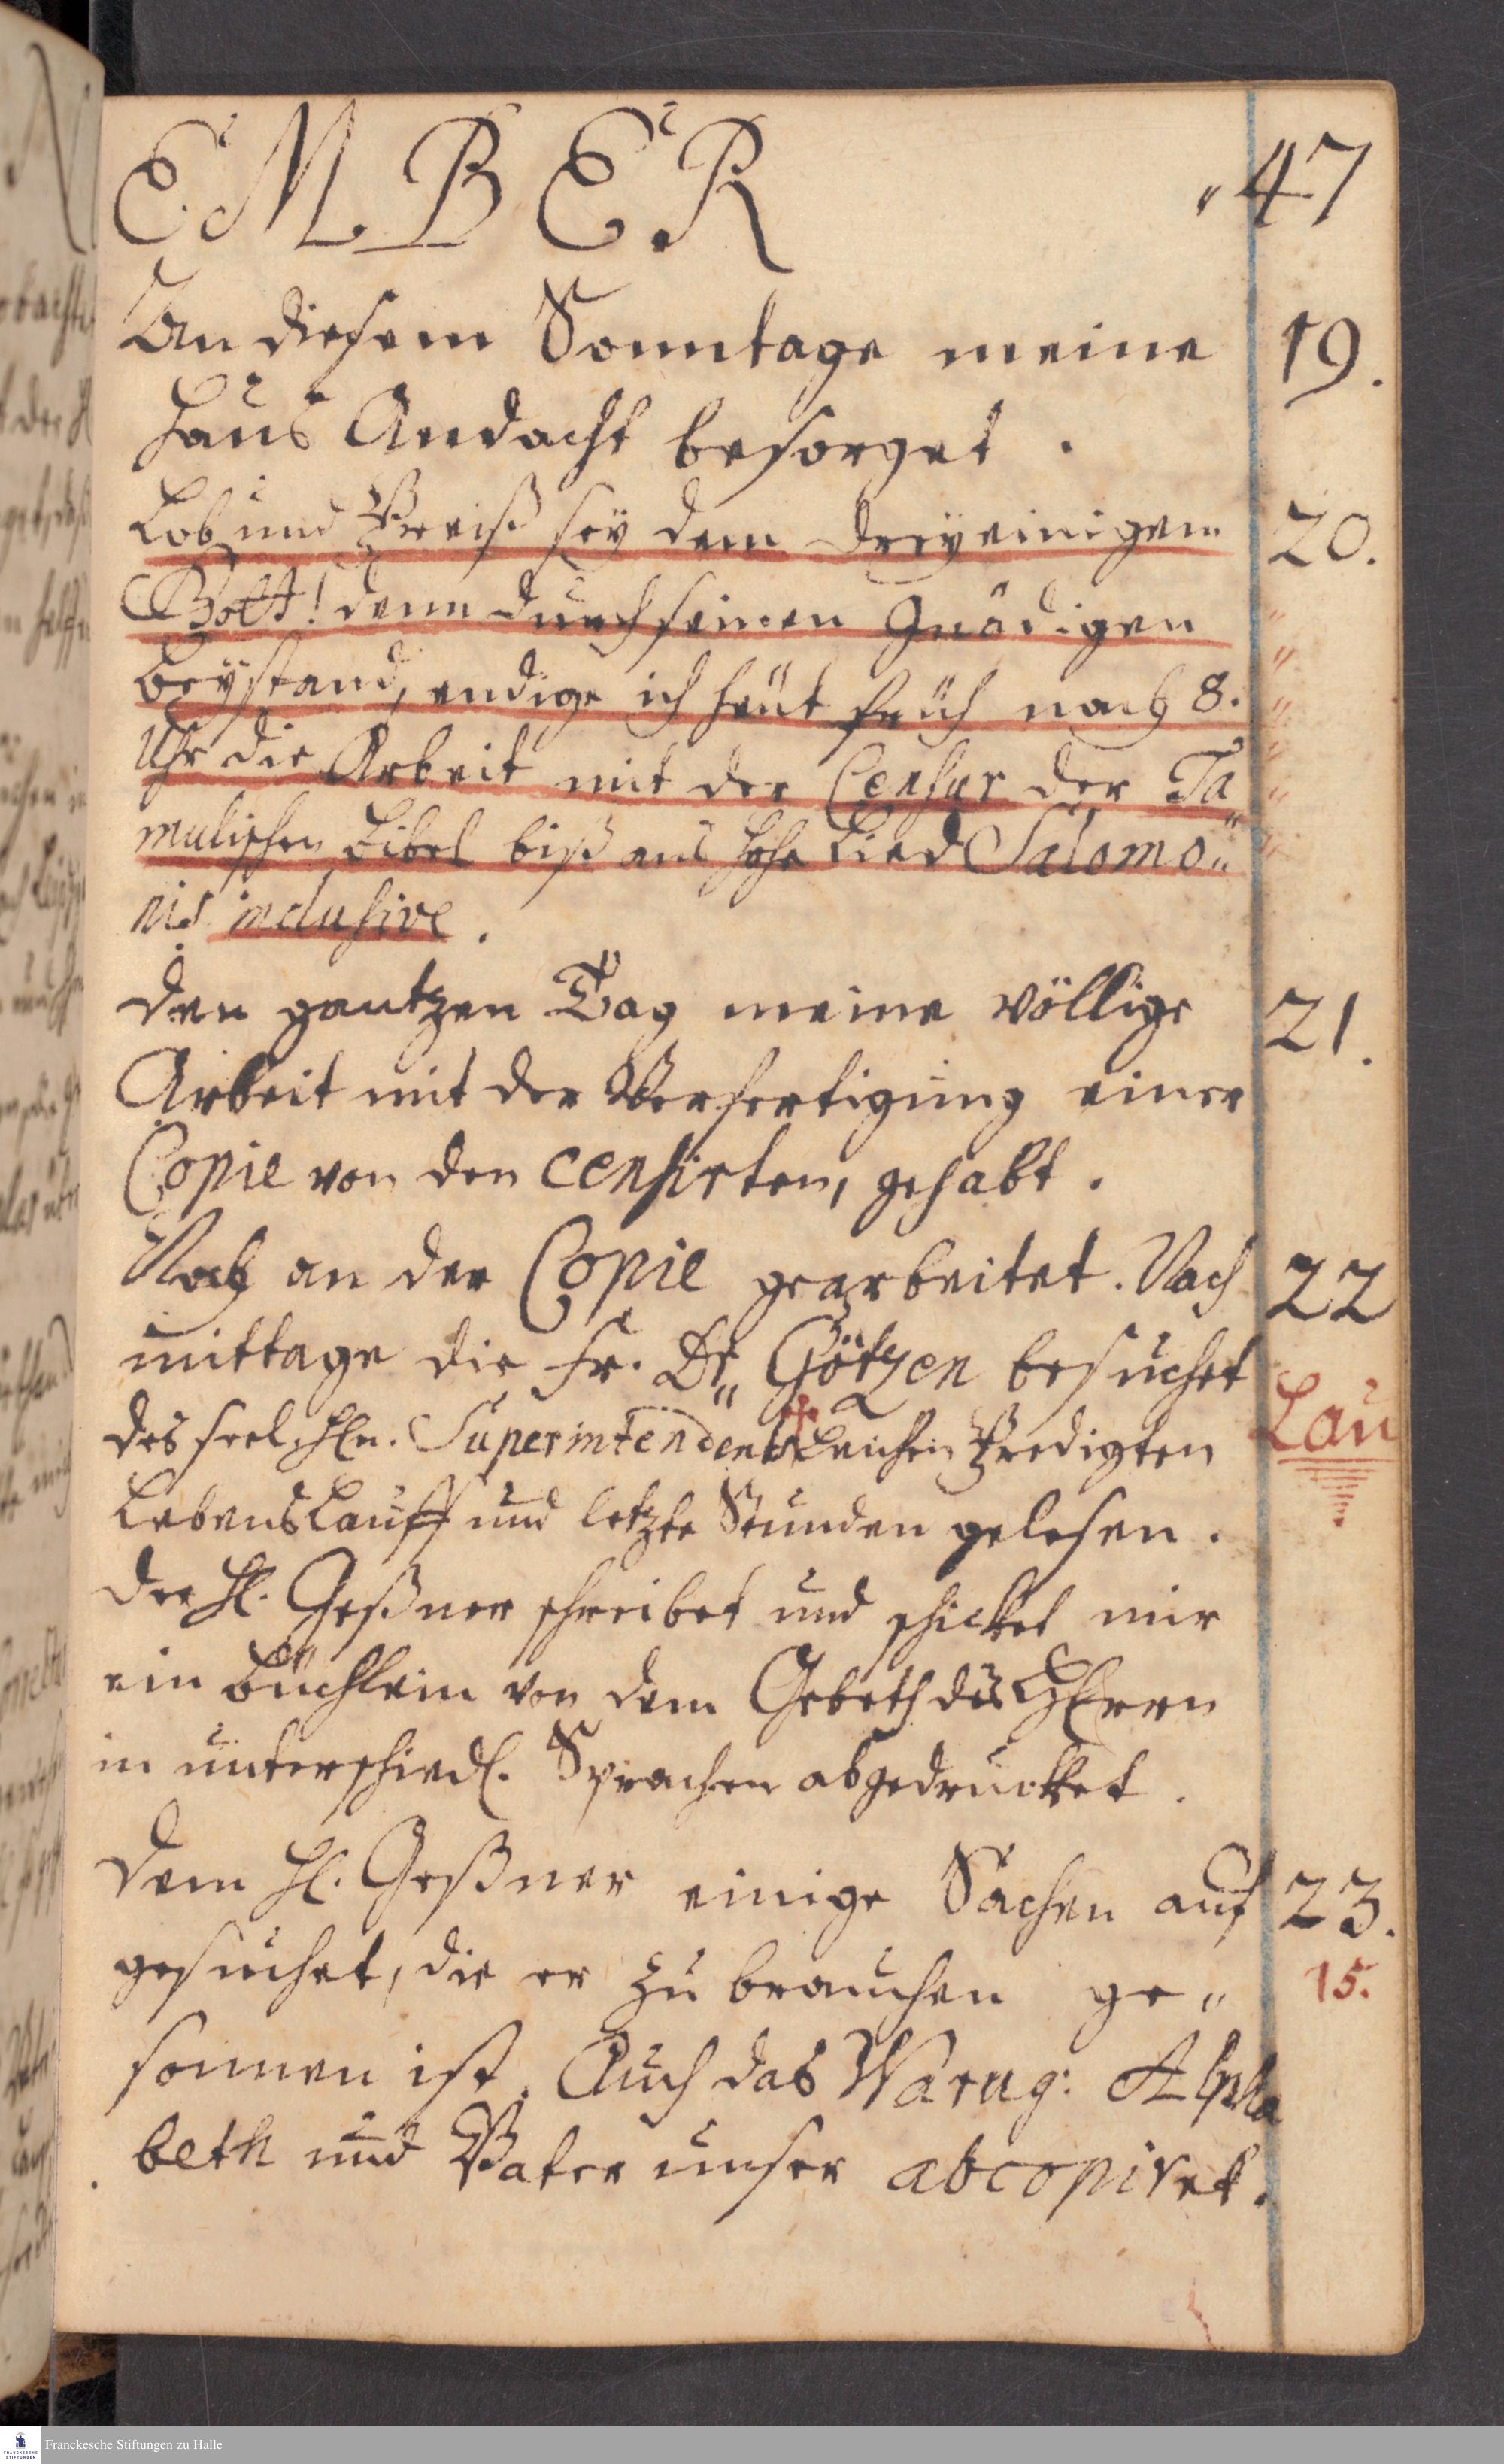 EMBER "47
An diesem Sonntage meine 19.
Haus Andacht besorget.
Lob und Preiß sey dem dreyeinigem 20.
Gott! denn durch seinen Gnädigen
Beystand, endige ich heut früh nach 8.
Uhr die Arbeit mit der Censur der Ta"
mulischen Bibel biß ans hohe Lied Salomo"
nis inclusive.
Den gantzen Tag meine völlige 21.
Arbeit mit der Verfertigung einer
Copie von den censirten, gehabt.
Noch an der Copie gearbeitet. Nach 22
mittage die Fr. Dr" Götzen besuchet
des seel. Hln. Superintendents Leichen Predigten Lau
Lebens Lauff und letzte Stunden gelesen.
Der Hl. Geßner schreibet und schicket mir
ein Büchlein von dem Gebeth des HErrn
in unterschiedl. Sprachen abgedrucket.
Dem Hl. Geßner einige Sachen auf 23.
gesuchet, die er zu brauchen ge" 15.
sonnen ist. Auch das Warug: Alpha
beth und Vater unser abcopiret.
Franckesche Stiftungen zu Halle